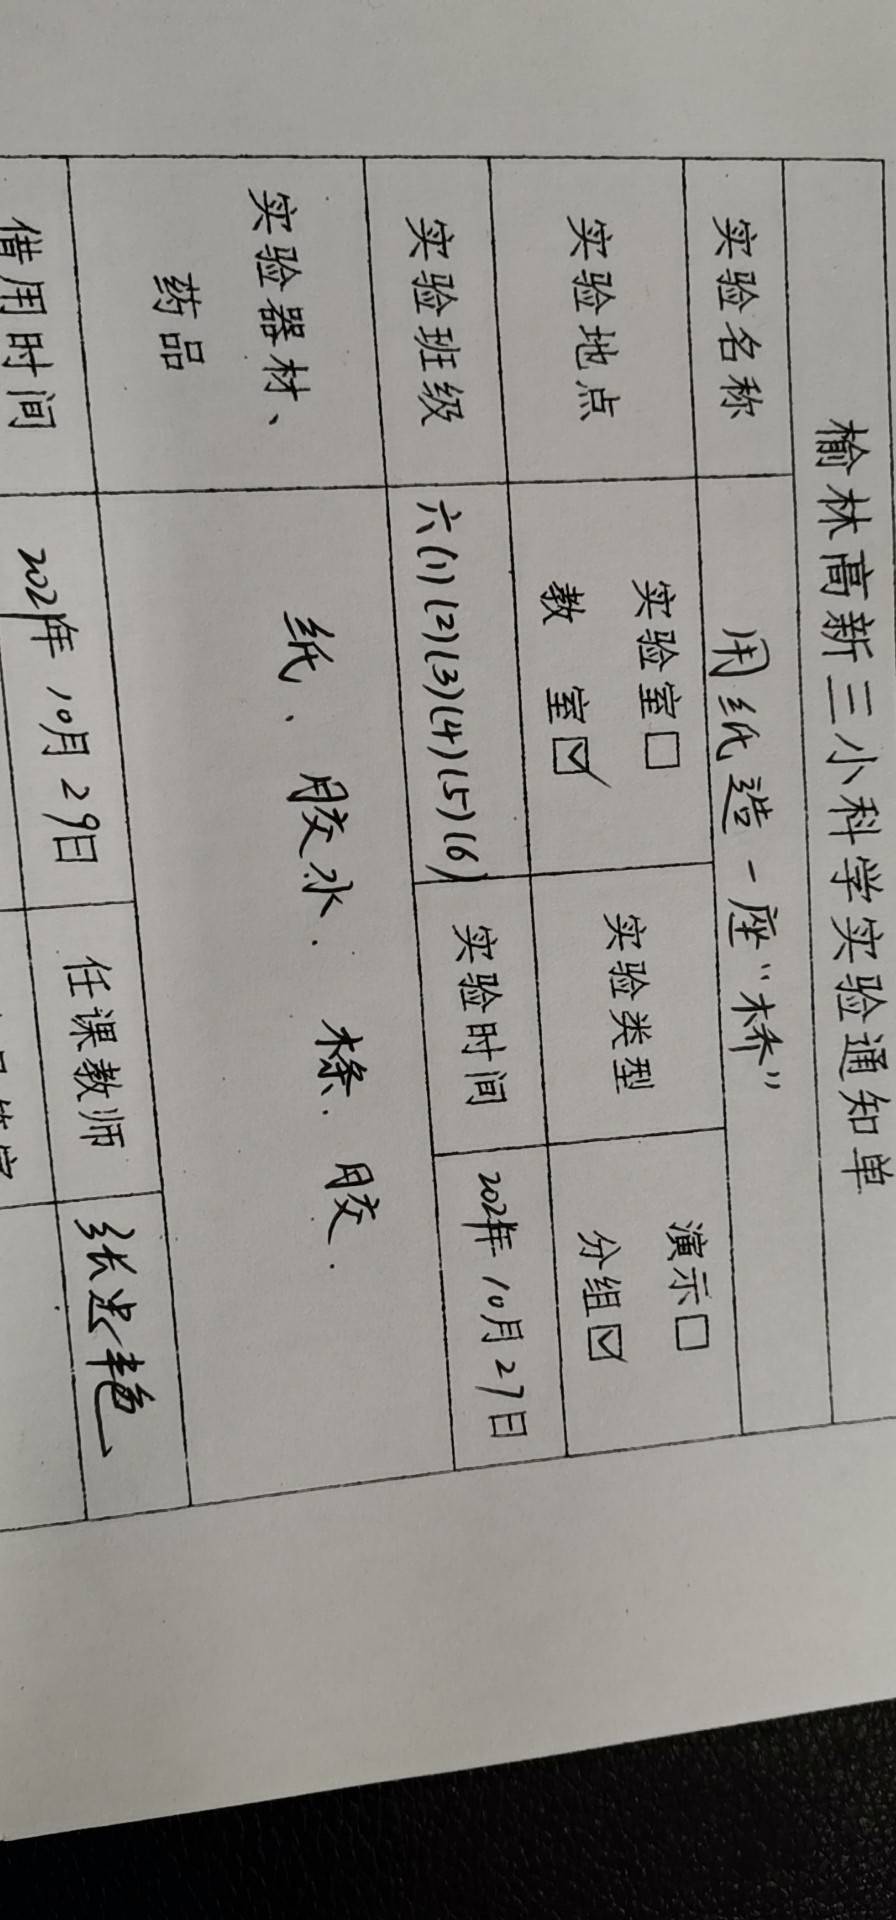 榆林高新三小科学实验通知单
实验名称 用纸造一座“桥”
实验地点 实验室□ 教 室☑ 实验类型 演示□ 分组☑
实验班级 六(1)(2)(3)(4)(5)(6) 实验时间 2021年10月27日
实验器材、药品 纸、胶水. 胶.
借用时间 2021年10月29日 任课教师 张